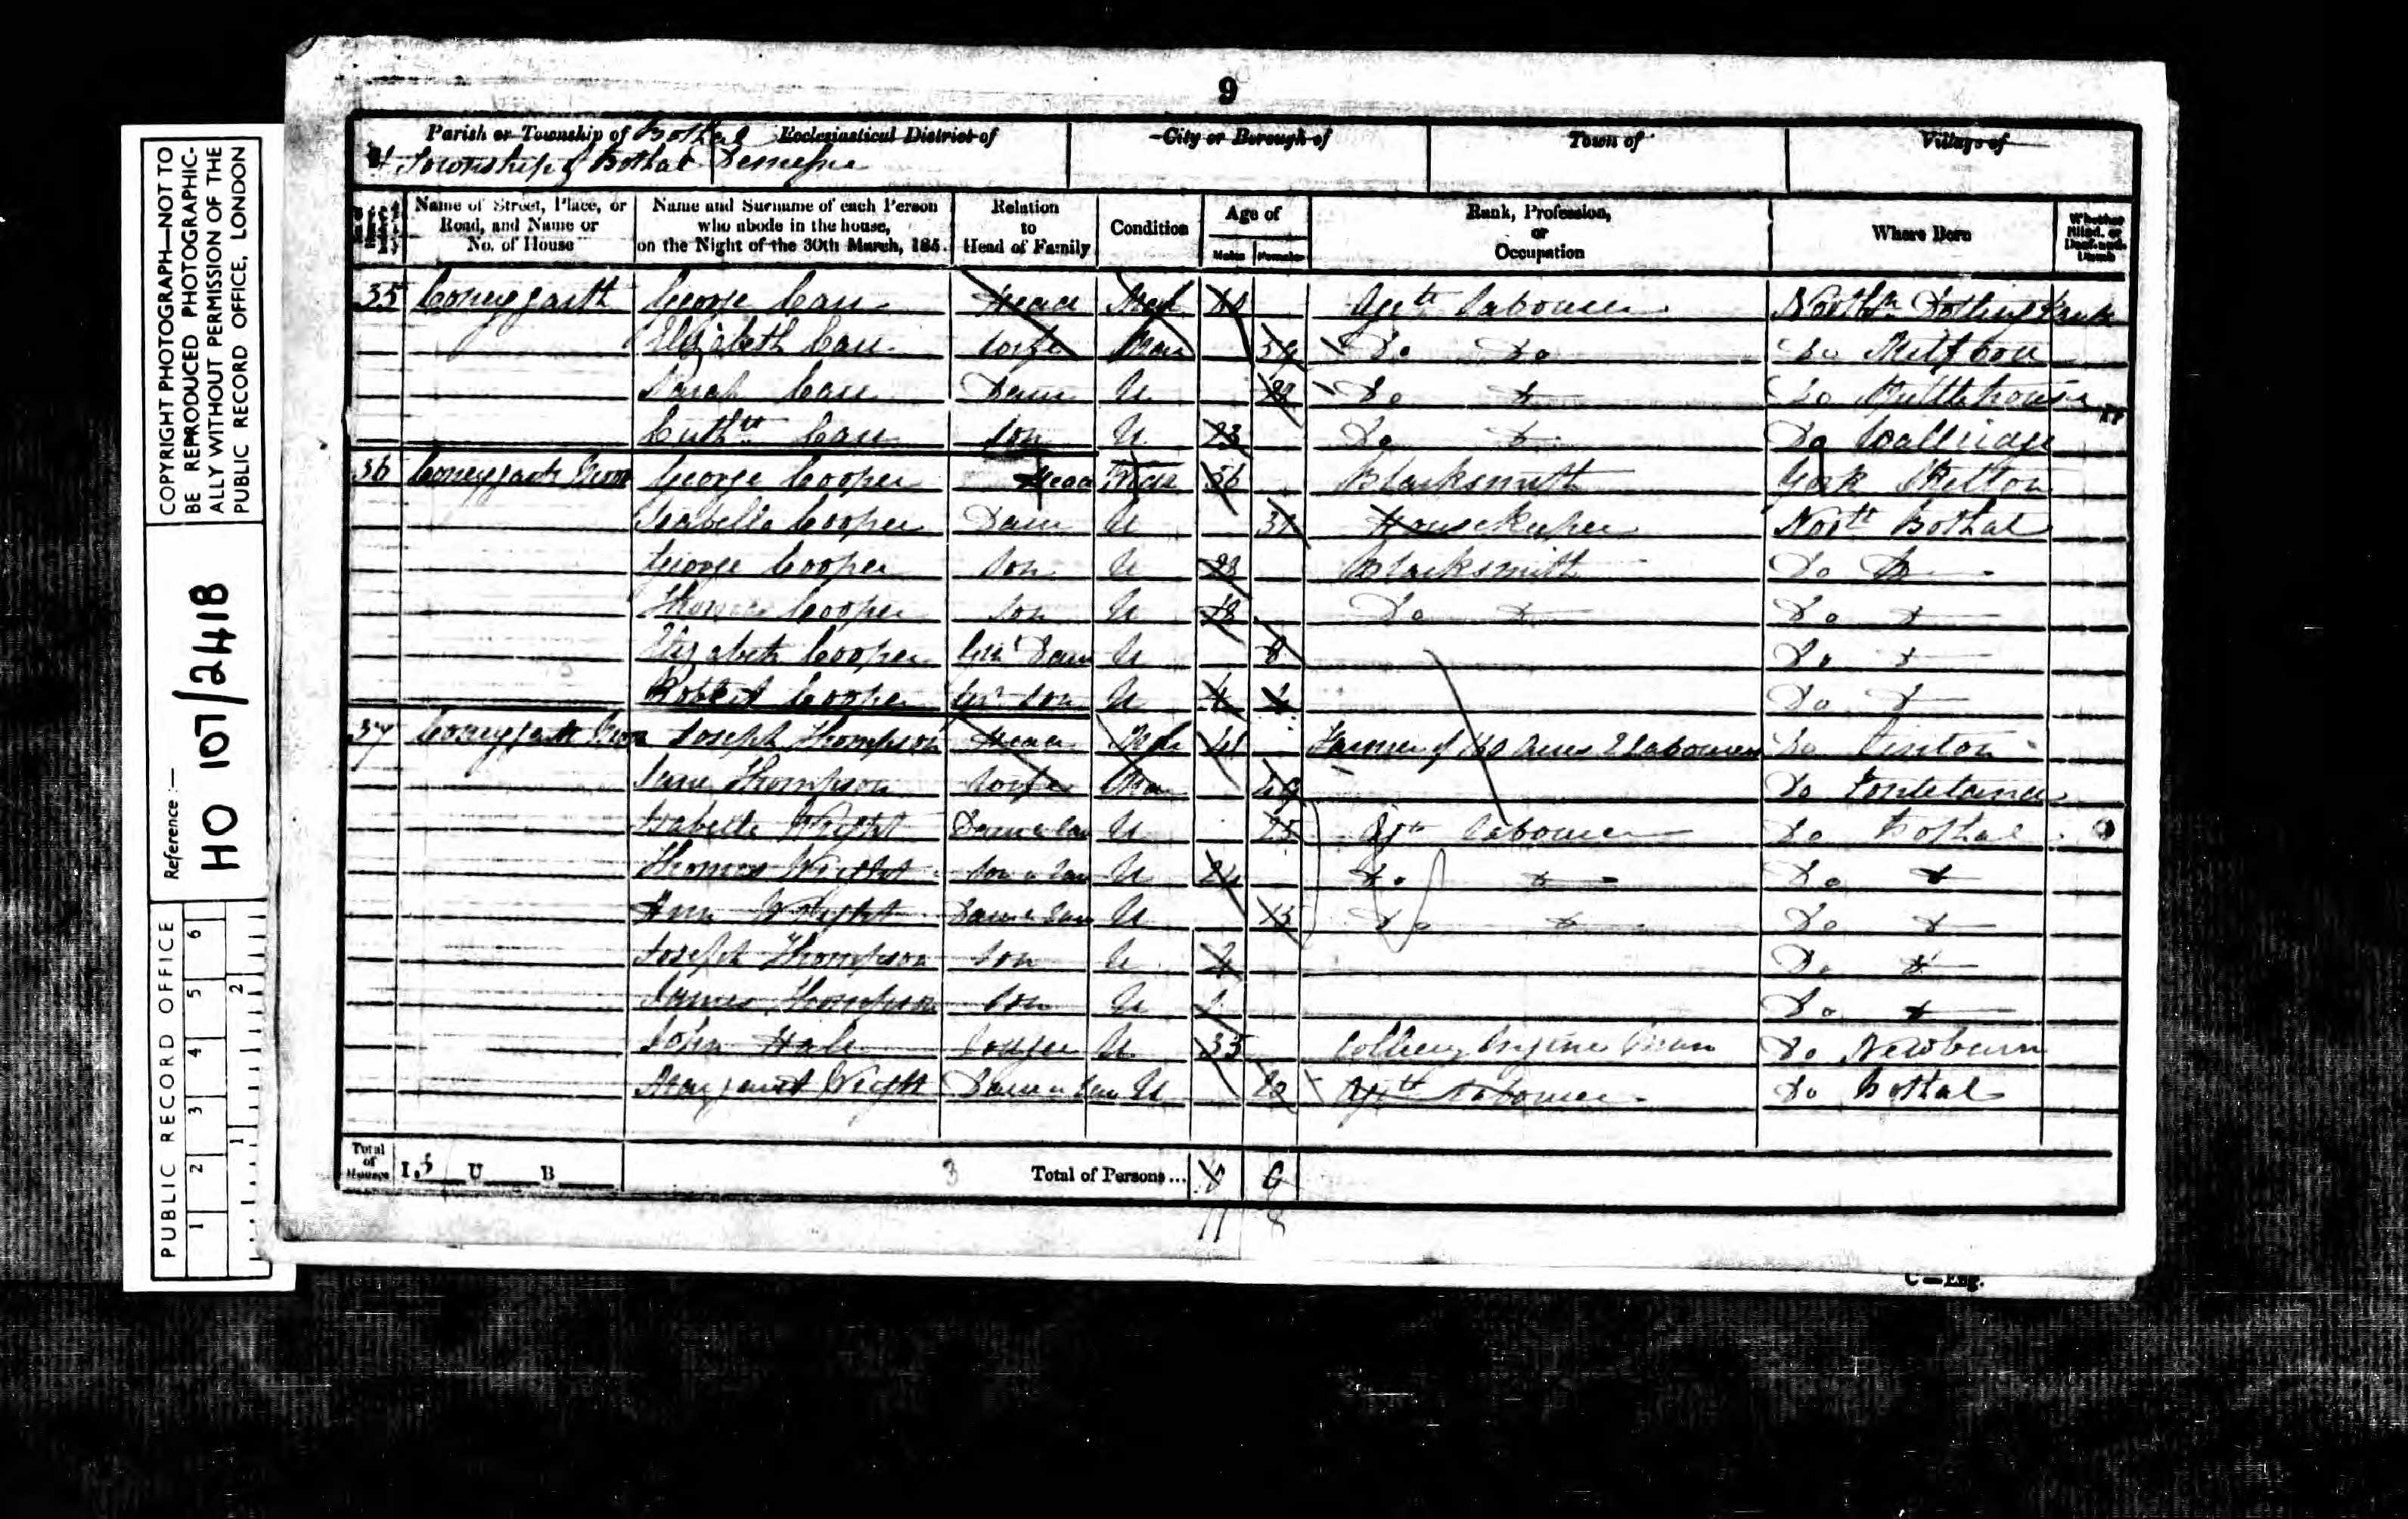 9
Parish or Township of Bothal Ecclesiastical District of City or Borough of Town of Village of
Township of Bothal Demesne
Name of Street, Place, or Road, and Name or No. of House
Name and Surname of each Person who abode in the house, on the Night of the 30th March, 185
Relation to Head of Family
Condition
Age of
Males Females
Rank, Profession, or Occupation
Where Born
Whether Blind, or Deaf and Dumb
35 Coneygarth George Carr Head Mar Agrlt Labourer
Elizabeth Carr Wife Mar 59 Do Do Do
Sarah Carr Daur U 22 Do Do Do
Cuthbt Carr Son U 23 Do Do Do
36 Coneygarth George Cooper Head 56 Blacksmith York Skelton
Isabella Cooper Daur U 31 Housekeeper North Bothal
George Cooper Son U 23 Blacksmith Do Do
Thomas Cooper Son U 18 Do Do Do Do
Elizabeth Cooper Daur U 8 Do Do
Robert Cooper Son U 4 Do Do
37 Coneygarth Joseph Thompson Head Mar 41 Farmer of 160 Acres 2 Labourers Do Linton
Jane Thompson Wife Mar 49 Do
Isabella Wright Daur in Law U 25 Labourer Do Bothal
Thomas Wright Son in Law U 24 Do Do Do Do
Ann Wright Daur in Law U 15 Do Do Do Do
Joseph Thompson Son U Do Do
James Thompson Son U Do Do
John Hall Lodger U 35 Colliery Engine Man Do Newburn
Margaret Wright Daur in Law U 22 Labourer Do Bothal
Total of Houses I. 3 U B
3 Total of Persons...
11 8
C—Eng.
COPYRIGHT PHOTOGRAPH—NOT TO
BE REPRODUCED PHOTOGRAPHIC-
ALLY WITHOUT PERMISSION OF THE
PUBLIC RECORD OFFICE, LONDON
Reference:—
HO 107/2418
PUBLIC RECORD OFFICE
1 2 3 4 5 6
1 2